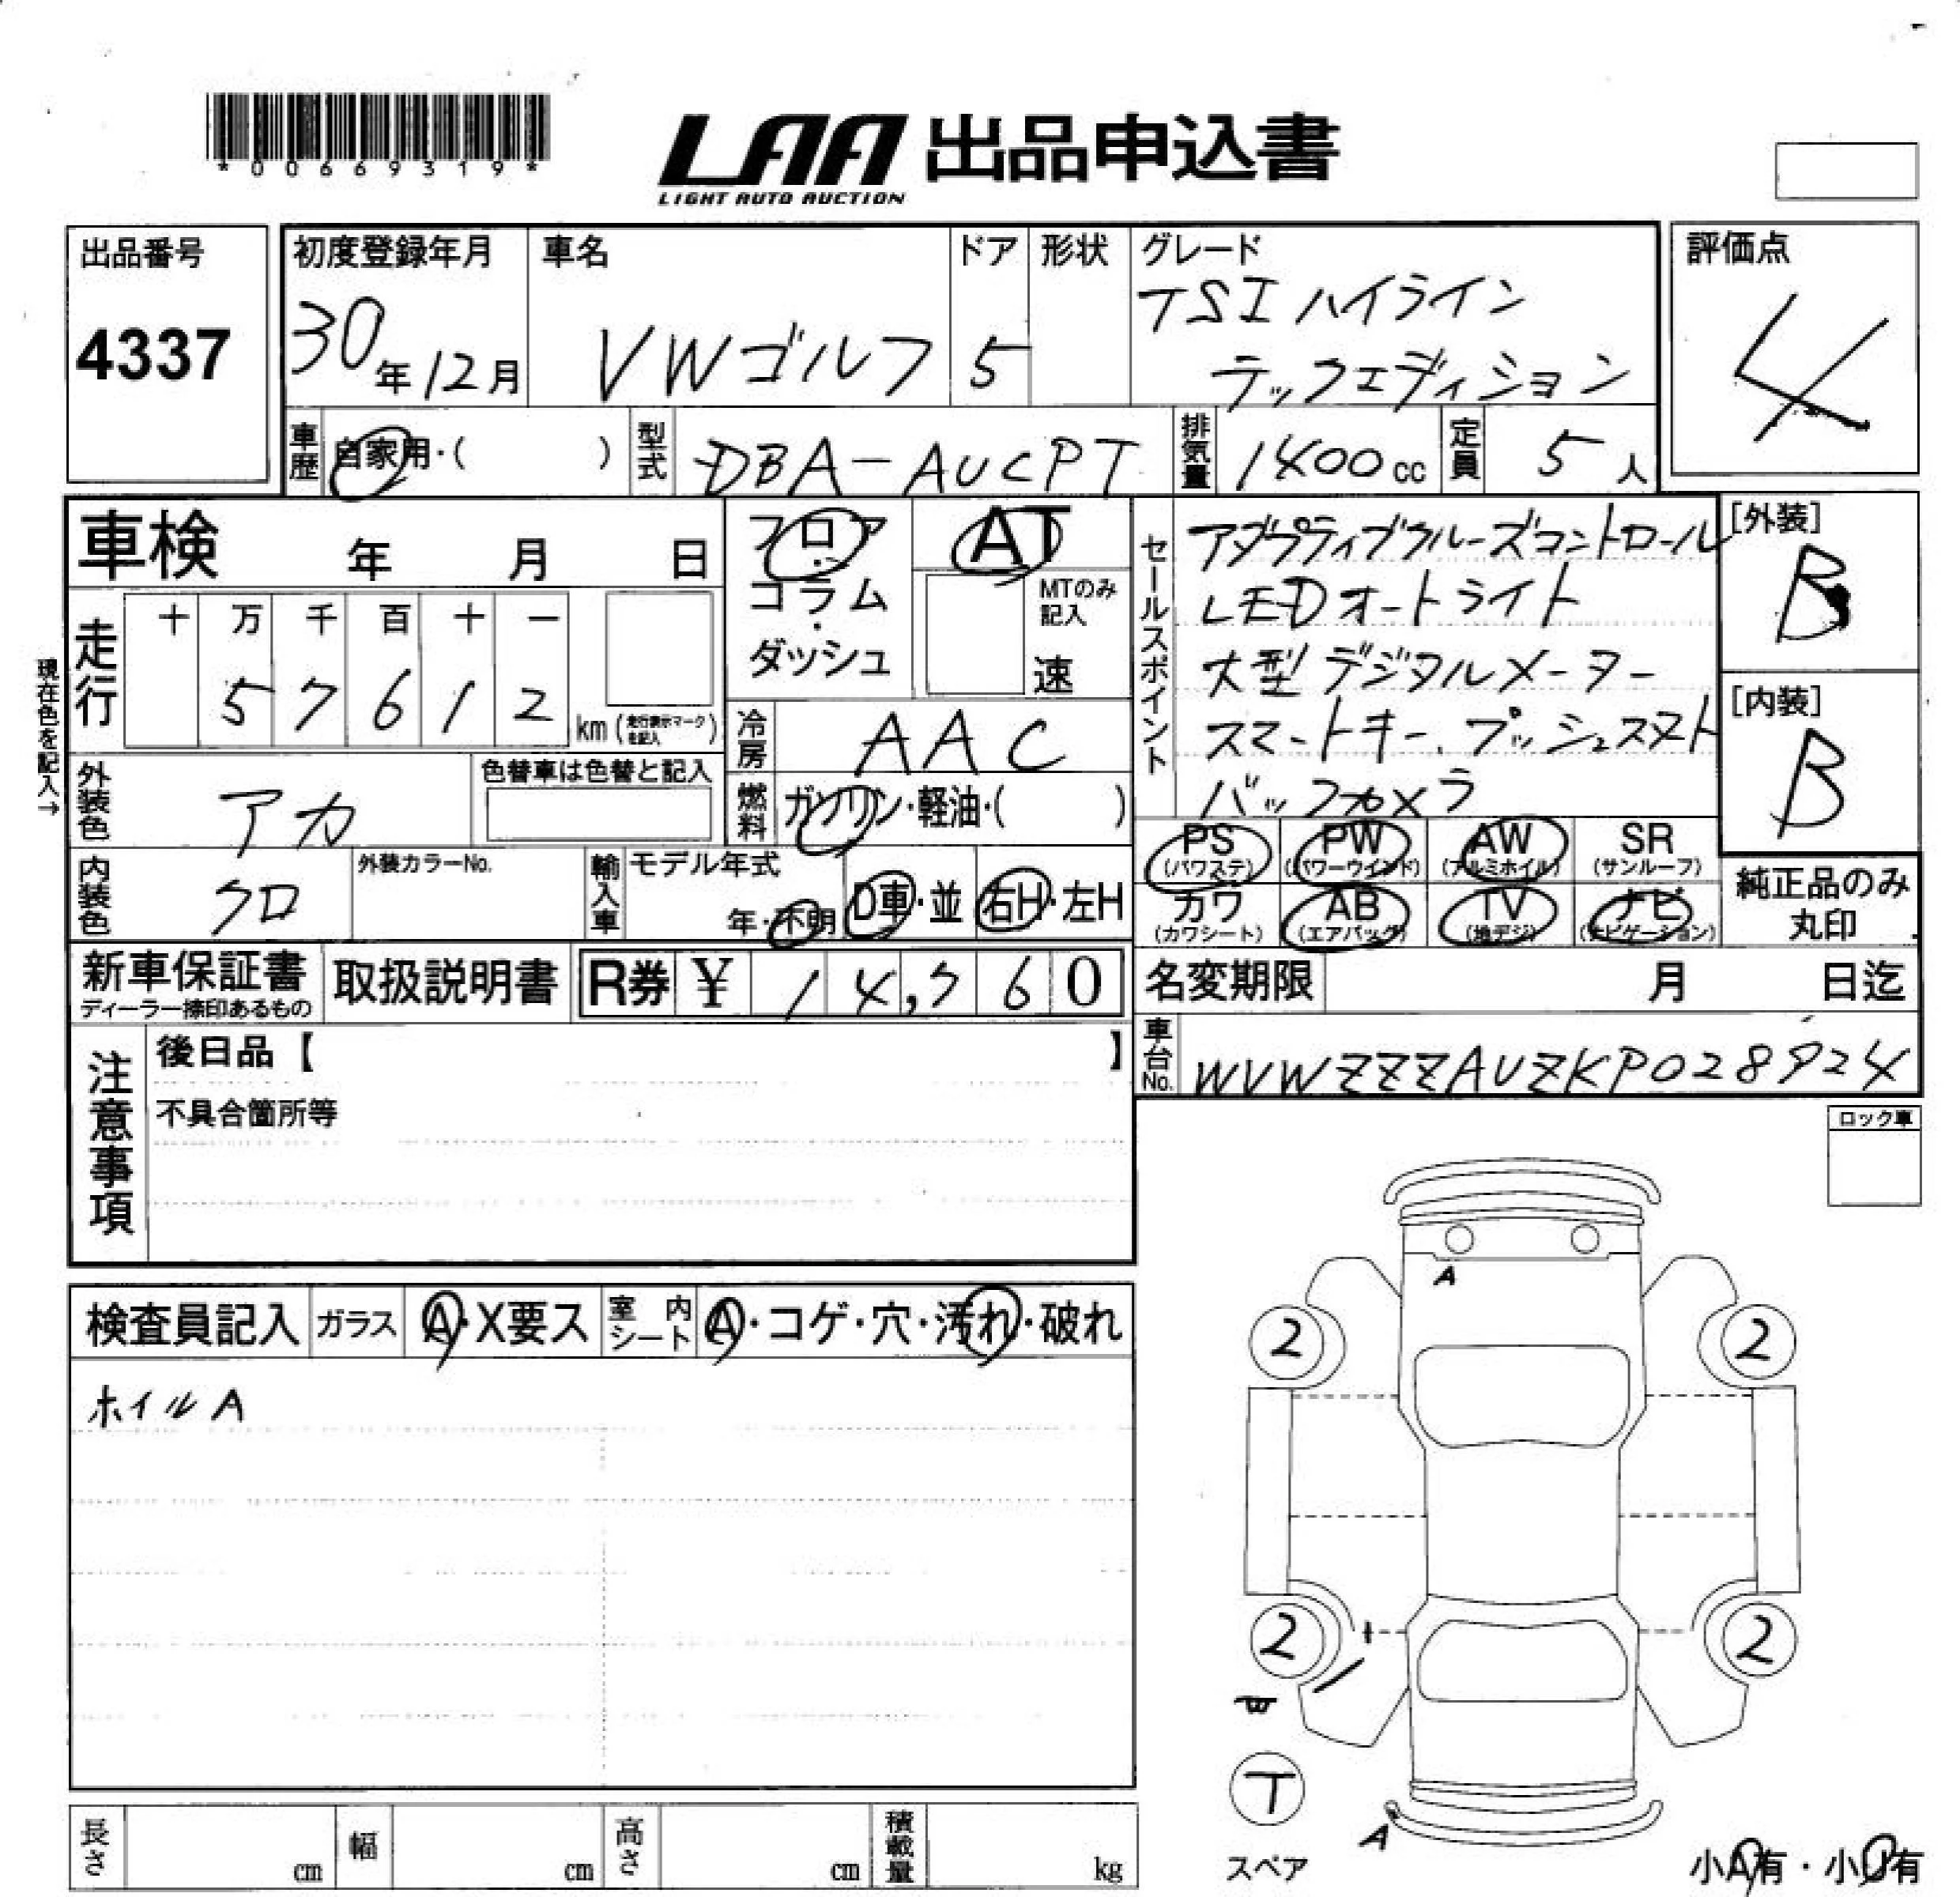 *00669319*
LAA 出品申込書
LIGHT AUTO AUCTION
出品番号
4337
初度登録年月
30年12月
車名
VWゴルフ
ドア
5
形状
グレード
TSIハイライン
テックエディション
評価点
4
車歴
自家用・( )
型式
DBA-AUCPT
排気量
1400cc
定員
5人
車検 年 月 日
フロア
・
コラム
・
ダッシュ
AT
MTのみ
記入
速
セールスポイント
アダプティブクルーズコントロール
LEDオートライト
大型デジタルメーター
スマートキー、プッシュスタート
バックカメラ
[外装]
B
[内装]
B
現在色を記入→
走行
十 万 千 百 十 一
5 7 6 1 2
km(走行表示マークを記入)
冷房
AAC
外装色
アカ
色替車は色替と記入
燃料
ガソリン・軽油・( )
PS
(パワステ)
PW
(パワーウインド)
AW
(アルミホイル)
SR
(サンルーフ)
内装色
クロ
外装カラーNo.
輸入車
モデル年式
年・不明
D車・並
右H・左H
カワ
(カワシート)
AB
(エアバッグ)
TV
(地デジ)
ナビ
(ナビゲーション)
純正品のみ
丸印
新車保証書
ディーラー捺印あるもの
取扱説明書
R券 ¥ 14,760
名変期限 月 日迄
注意事項
後日品【 】
不具合箇所等
車台No.
WVWZZZAUZKP028924
ロック車
検査員記入
ガラス
A・X要ス
室内シート
A・コゲ・穴・汚れ・破れ
ホイルA
A
2
2
2
2
W
T
スペア
A
小A有・小U有
長さ cm
幅 cm
高さ cm
積載量 kg